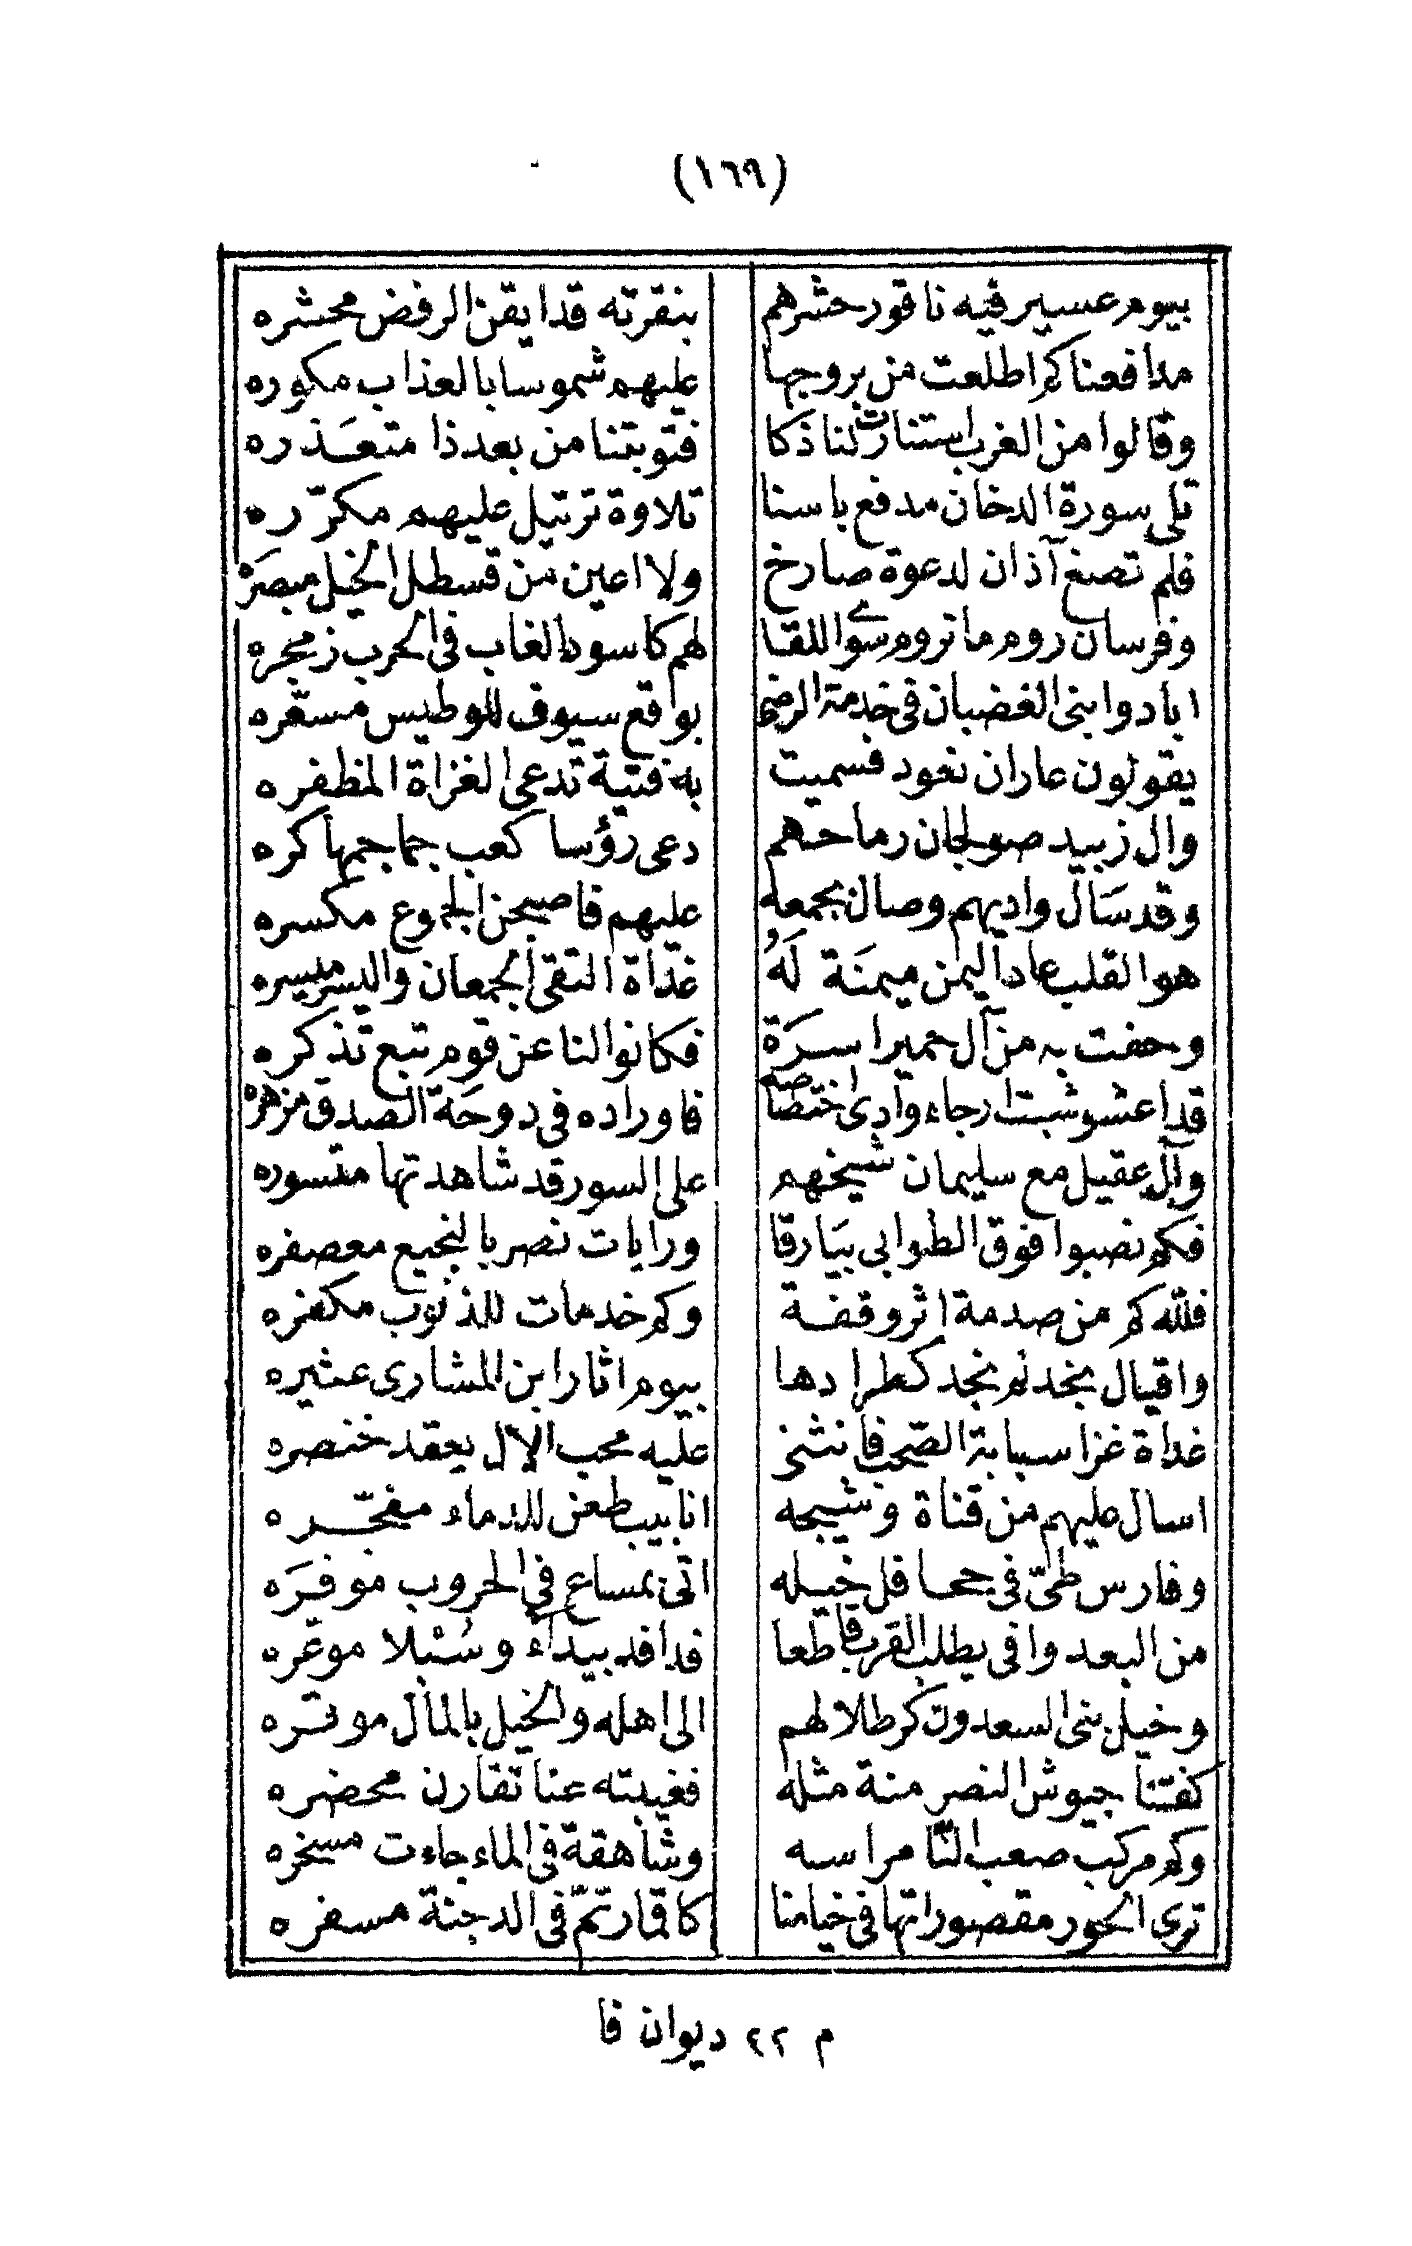 (١٦٩)
بيوم عسير فيه ناقور حشرهم بنقرته قد ايقن الرفض محشره
مدافعنا كم اطلعت من بروجها عليهم شموسا بالعذاب مكوره
وقالوا من الغرب استنارت لنا ذكا فتوبتنا من بعد ذا متعذره
تلى سورة الدخان مدفع باسنا تلاوة ترتيل عليهم مكرّره
فلم تصغ آذان لدعوة صارخ ولا اعين من قسطل الخيل مبصره
وفرسان روم ما تروم سوى اللقا لهم كاسود الغاب في الحرب زمجره
ابادوا بنى الغضبان في خدمة الرضى بواقع سيوف للوطيس مسعّره
يقولون عار ان نعود فسميت به فتية تدعى الغزاة المظفره
وال زبيد صولجان رماحهم دعى رؤسا كعب جماجمها كره
وقد سَال واديهم وصال بجمعه عليهم فاصبحن الجموع مكسره
هو القلب عاد اليمن ميمنَة لَهُ غداة التقى الجمعان واليسر ميسره
وحفت به من آل حمير اسرَة فكانوا لنا عن قوم تبع تذكره
قد اعشوشبت ارجاء وادى اختصاصه فاوراده في دوحَة الصدق مزهره
وآل عقيل مع سليمان شيخهم على السور قد شاهدتها متسوره
فكم نصبوا فوق الطوابى بيَارقا ورايات نصر بالنجيع معصفره
فلله كم من صدمة اثر وقفة وكم خدمات للذنوب مكفره
واقيال نجد نم نجد كطرادها بيوم اثار ابن المشارى عثيره
غداة غزا سبابة الصّحب فانثنى عليه محب الآل يعقد خنصره
اسال عليهم من قناة وشيجه انابيب طعن للدماء مفجّره
وفارس طىّ في جحافل خيله اتى بمساع في الحروب موفرَه
من البعد وافى يطلب القرب قاطعا فدافد بيداء وسُبْلا موعّره
وخيل بنى السعدون كم طلا لهم الى اهله والخيل بالمال موقره
كفتنا جيوش النصر منة مثله فغيبته عنا تقارن محضره
وكم مركب صعب لنا مراسه وشاهقة في الماء جاءت مسخره
ترى الحور مقصوراتها في خيامنا كاقمار تمّ في الدجنّة مسفره
م ٢٢ ديوان فا